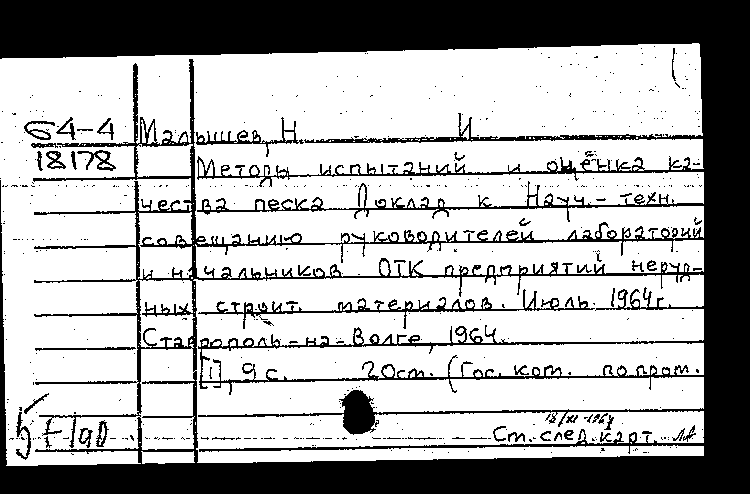 64-4 Малышев, Н И
18178 Методы испытаний и оценка ка-
чества песка Доклад к Науч.-техн.
совещанию руководителей лабораторий
и начальников ОТК предприятий неруд-
ных строит. материалов. Июль 1964г.
Ставрополь-на-Волге, 1964.
[1], 9 с. 20см. (Гос. ком. по пром.
18/XI-1964
См. след. карт.